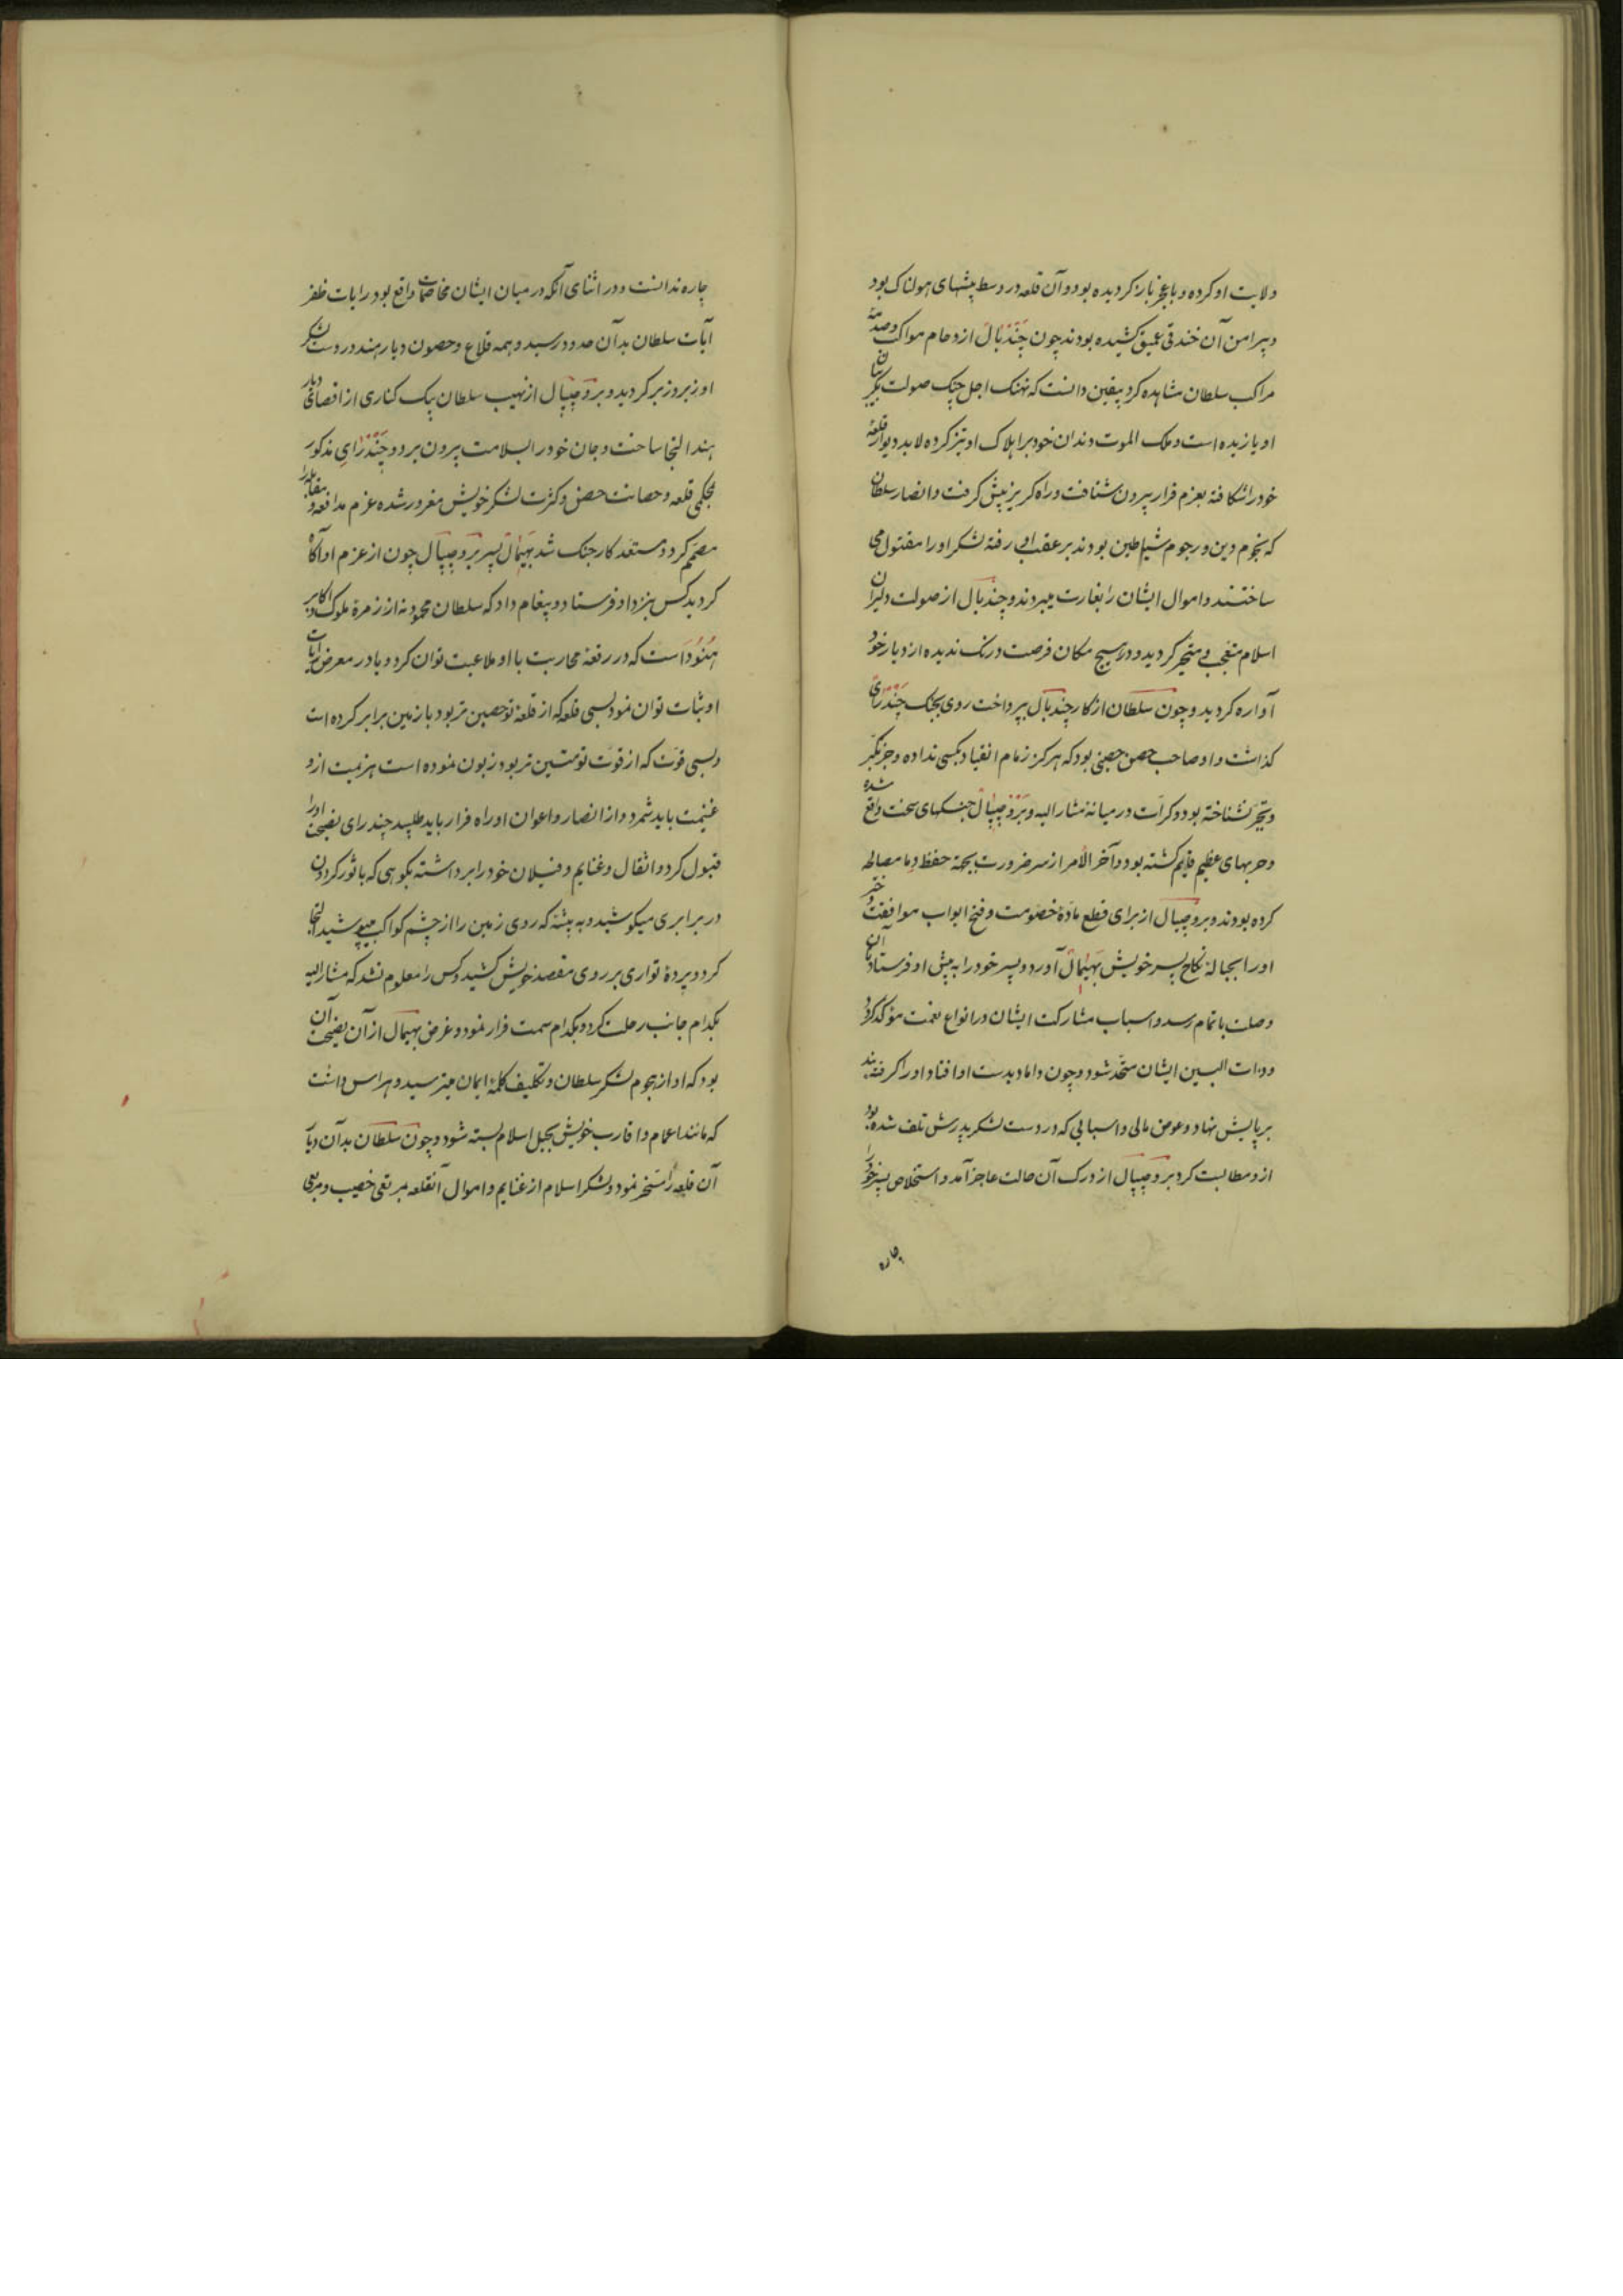 ولایت او کرده و با عجز باز کردیده بود و آن قلعه در وسط بیشهای هولناک بود
و پیرامن آن خندقی عمیق کشیده بودند چون چندبال ازدحام مواکب و صدمهٔ
مراکب سلطان مشاهده کرد بیقین دانست که نهنک اجل چنک صولت بکریبان
او یازیده است و ملک الموت دندان خود بر اهلاک او تیز کرده لابد دیوار قلعهٔ
خود را شکافته بعزم فرار بیرون شتافت و راه کریز پیش کرفت و انصار سلطان
که نجوم دین و رجوم شیاطین بودند بر عقب او رفته لشکر او را مقتول می
ساختند و اموال ایشان را بغارت میبردند و چندبال از صولت دلیران
اسلام متعجب و متحیر کردید و در هیچ مکان فرصت درنک ندیده از دیار خود
آواره کردید و چون سلطان از کار چندبال بپرداخت روی بجنک چندرای
کذاشت و او صاحب حصن حصینی بود که هرکز زمام انقیاد بکسی نداده و جز تکبر
و تجبر نشناخته بود و کرات در میانه مشار الیه و بروجیپال جنکهای سخت واقع شده
و حربهای عظیم قایم کشته بود و آخر الأمر از سر ضرورت بجهة حفظ دما مصالحه
کرده بودند و بروجیپال از برای قطع مادهٔ خصومت و فتح ابواب موافقت دختر
او را بحبالهٔ نکاح پسر خویش بهیمال آورد و پسر خود را به پیش او فرستاد تا آن
وصلت باتمام رسد و اسباب مشارکت ایشان در انواع نعمت مؤکد کردد
و ذات البین ایشان متحد شود و چون داماد بدست او افتاد او را کرفته بند
بر پایش نهاد و عوض مالی و اسبابی که در دست لشکر پدرش تلف شده بود
ازو مطالبت کرد بروجیپال از درک آن حالت عاجز آمد و استخلاص پسر خود را
چاره
چاره ندانست و در اثنای آنکه در میان ایشان مخاصمات واقع بود رایات ظفر
آیات سلطان بدآن حدود رسید و همه قلاع و حصون دیار هند در دست لشکر
او زبر و زیر کردید و بروجیپال از نهیب سلطان بیک کناری از اقصای دیار
هند التجا ساخت و جان خود را بسلامت بیرون برد و چندرای مذکور
بمحکمی قلعه و حصانت حصن و کثرت لشکر خویش مغرور شده عزم مدافعه و مقابله را
مصمم کرد و مستعد کار جنک شد بهیمال پسر بروجیپال چون از عزم او آکاه
کردید کس بنزد او فرستاد و پیغام داد که سلطان محمود نه از زمرهٔ ملوک و اکابر
هنود است که در رقعهٔ محاربت با او ملاعبت توان کرد و یا در معرض رایات
او ثبات توان نمود بسی قلعه که از قلعهٔ تو حصین تر بود با زمین برابر کرده است
و بسی قوت که از قوت تو متین تر بود زبون نموده است هزیمت ازو
غنیمت باید شمرد و از انصار و اعوان او راه فرار باید طلبید چندرای نصیحت او را
قبول کرد و اثقال و غنایم و فیلان خود را برداشته بکوهی که با ثور کردون
در برابری میکوشید و به بیشهٔ که روی زمین را از چشم کواکب میپوشید التجا
کرد و پردهٔ تواری بر روی مقصد خویش کشید و کس را معلوم نشد که مشار الیه
بکدام جانب رحلت کرد و بکدام سمت فرار نمود و غرض بهیمال از آن نصیحت آن
بود که او از هجوم لشکر سلطان و تکلیف کلمهٔ ایمان میترسید و هراس داشت
که مانند اعمام و اقارب خویش بحبل اسلام بسته شود و چون سلطان بدآن دیار
آن قلعه را مسخر نمود و لشکر اسلام از غنایم و اموال آنقلعه مرتعی خصیب و مربعی